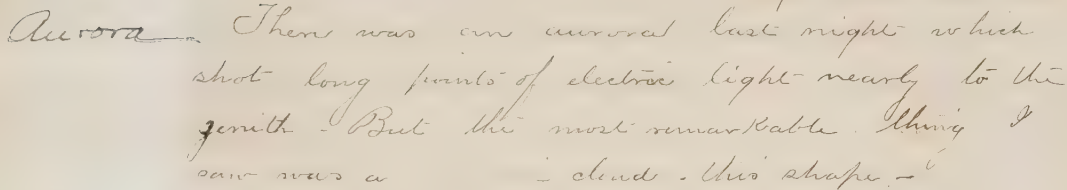 Aurora - There was an aurora last night which
shot long points of electric light nearly to the
zenith - But the most remarkable thing I
saw was a - cloud - this shape -